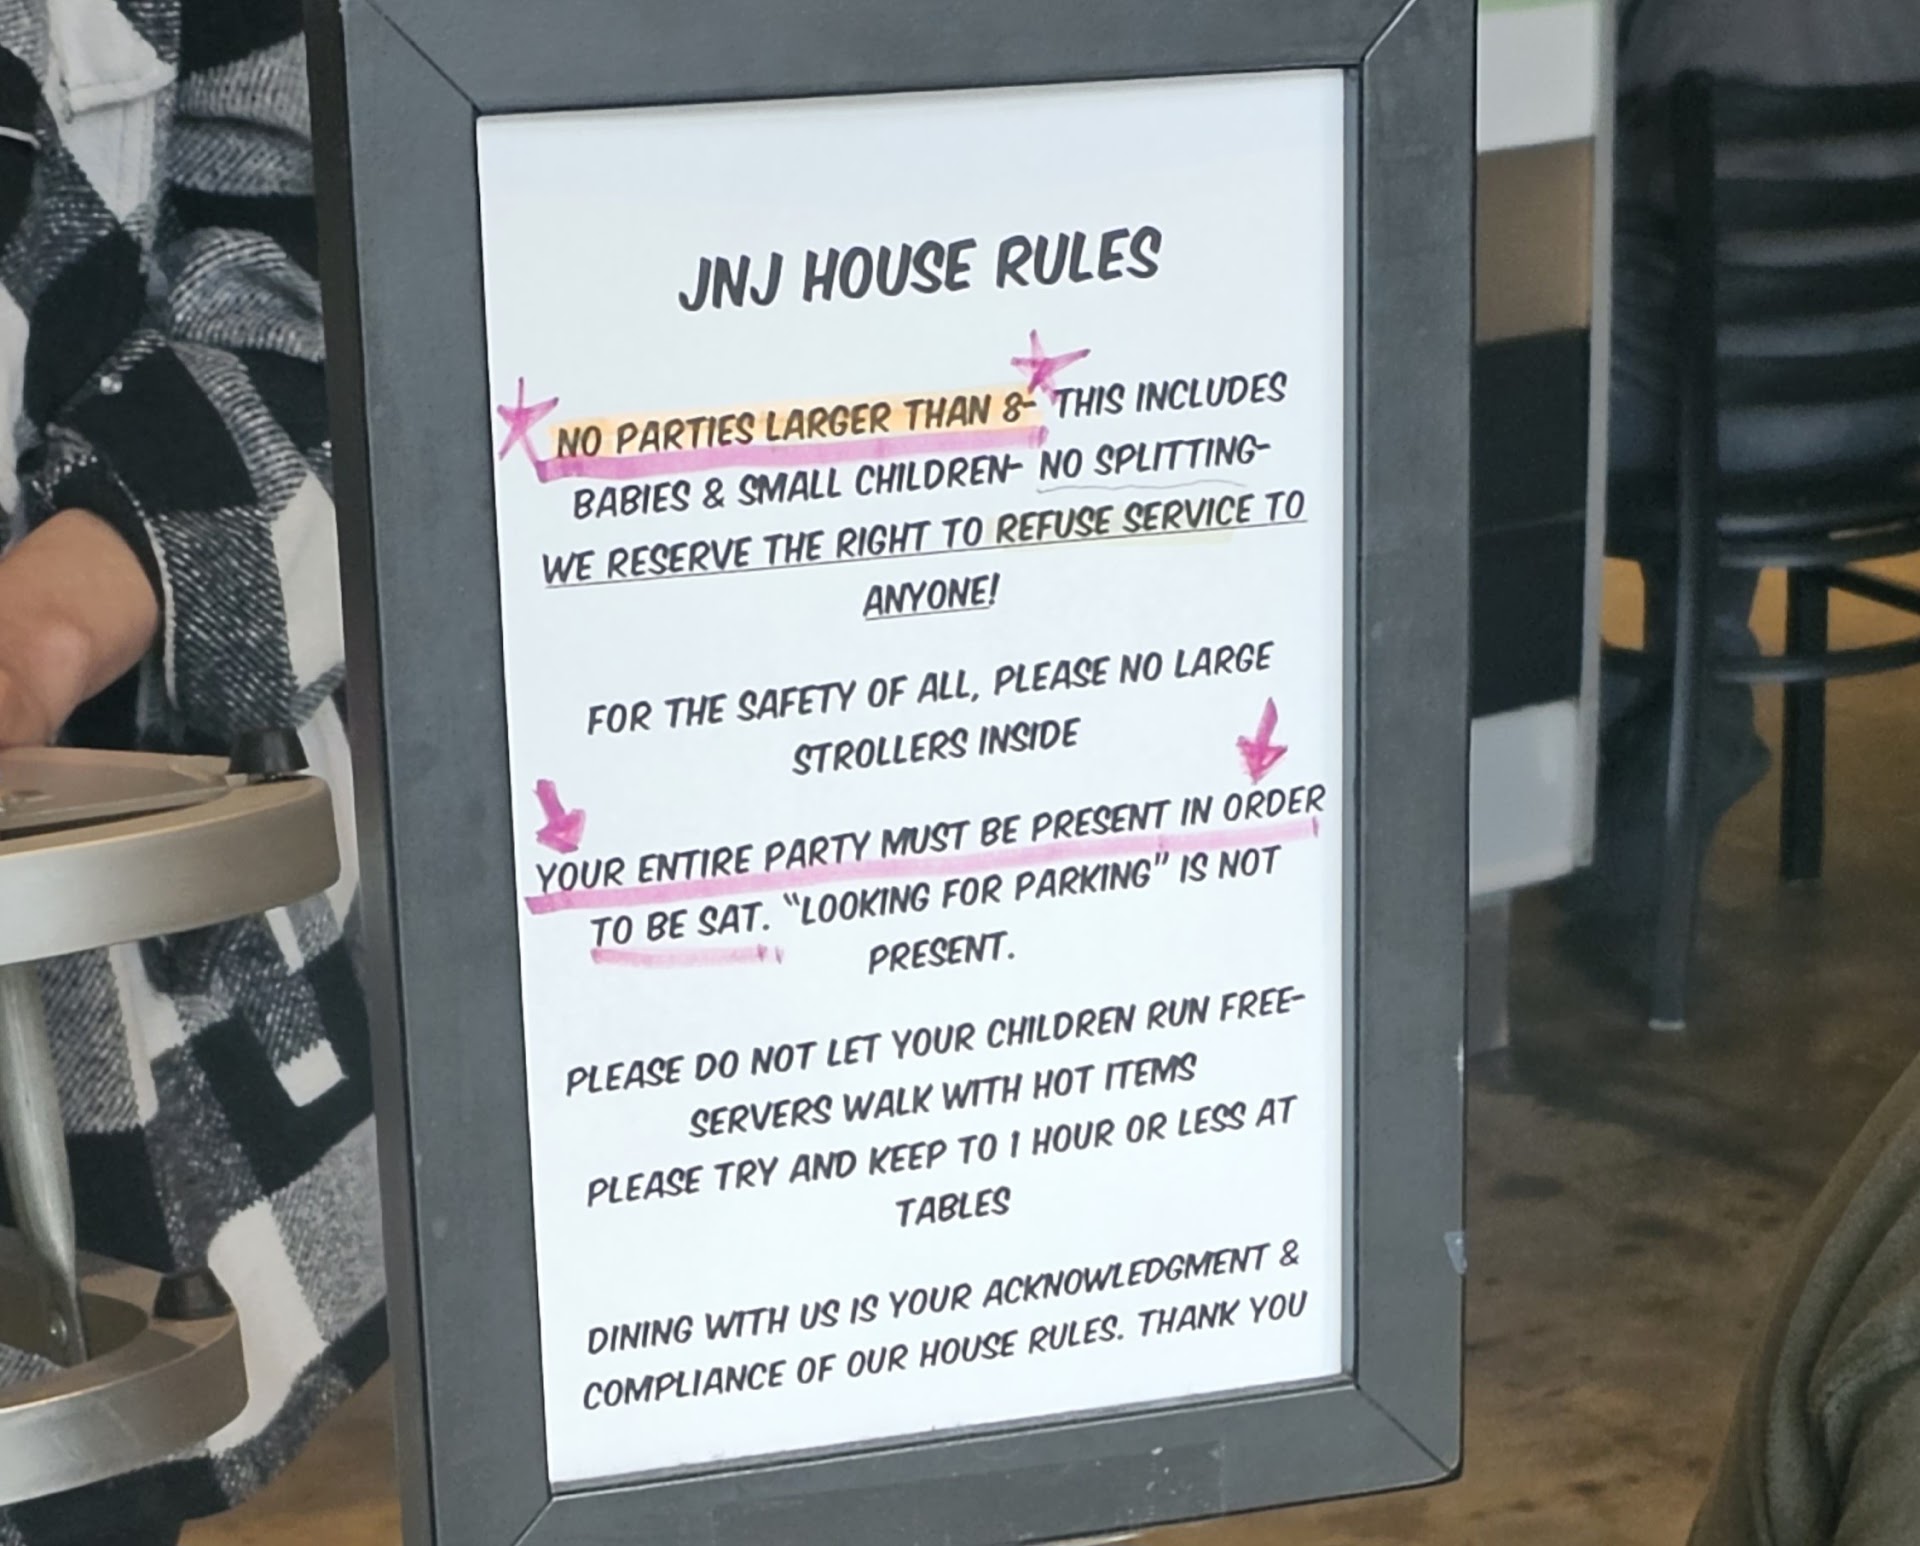 JNJ HOUSE RULES
NO PARTIES LARGER THAN 8- THIS INCLUDES
BABIES & SMALL CHILDREN- NO SPLITTING-
WE RESERVE THE RIGHT TO REFUSE SERVICE TO
ANYONE!
FOR THE SAFETY OF ALL, PLEASE NO LARGE
STROLLERS INSIDE
YOUR ENTIRE PARTY MUST BE PRESENT IN ORDER
TO BE SAT. “LOOKING FOR PARKING” IS NOT
PRESENT.
PLEASE DO NOT LET YOUR CHILDREN RUN FREE-
SERVERS WALK WITH HOT ITEMS
PLEASE TRY AND KEEP TO 1 HOUR OR LESS AT
TABLES
DINING WITH US IS YOUR ACKNOWLEDGMENT &
COMPLIANCE OF OUR HOUSE RULES. THANK YOU